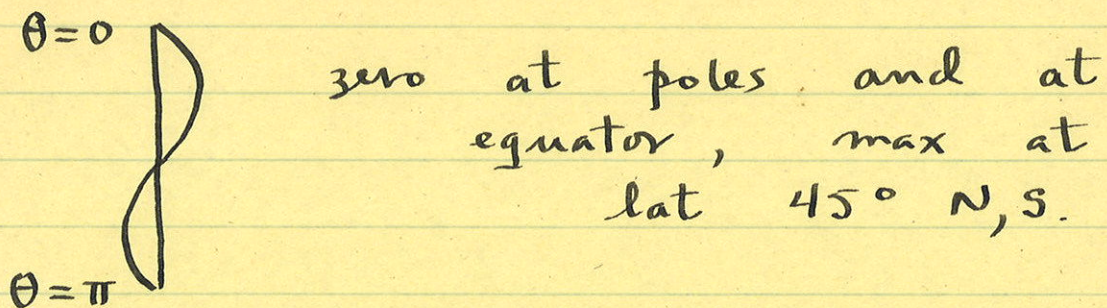 θ=0
zero at poles and at
equator, max at
lat 45° N,S.
θ=π